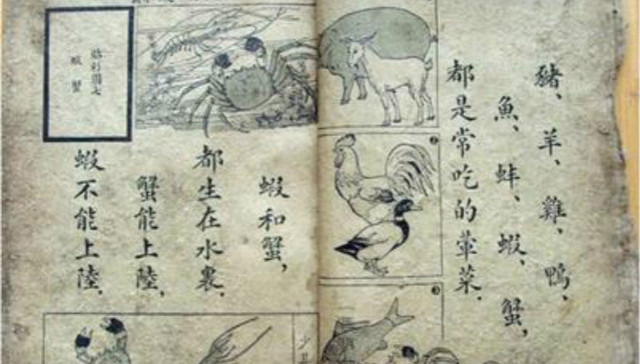 豬、羊、雞、鴨、
魚、蚌、蝦、蟹,
都是常吃的葷菜.
蝦和蟹,
都生在水裏.
蟹能上陸.
蝦不能上陸.
蝦蟹